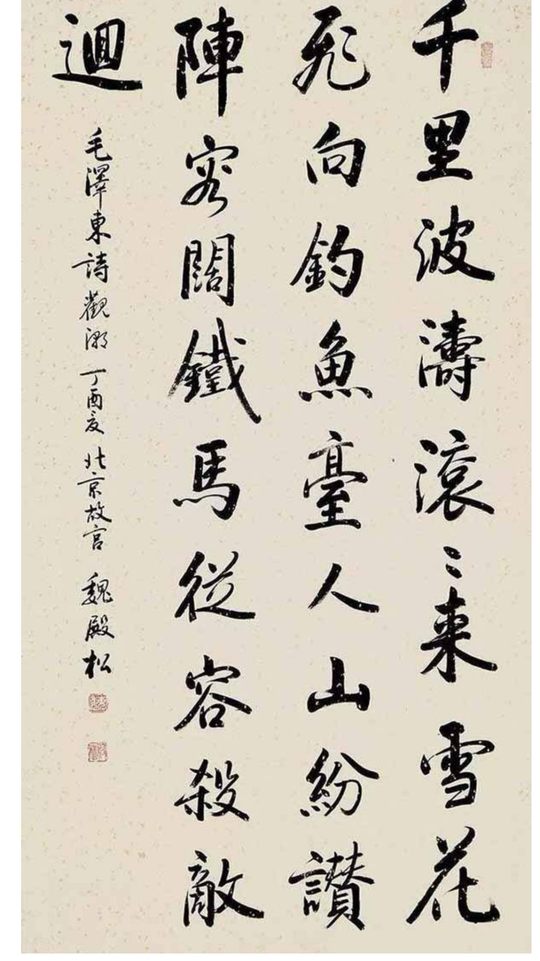 千里波濤滾〻来雪花
飛向釣魚臺人山紛讚
陣容闊鐵馬從容殺敵
迴
毛澤東詩觀潮丁酉夏北京故宮魏殿松